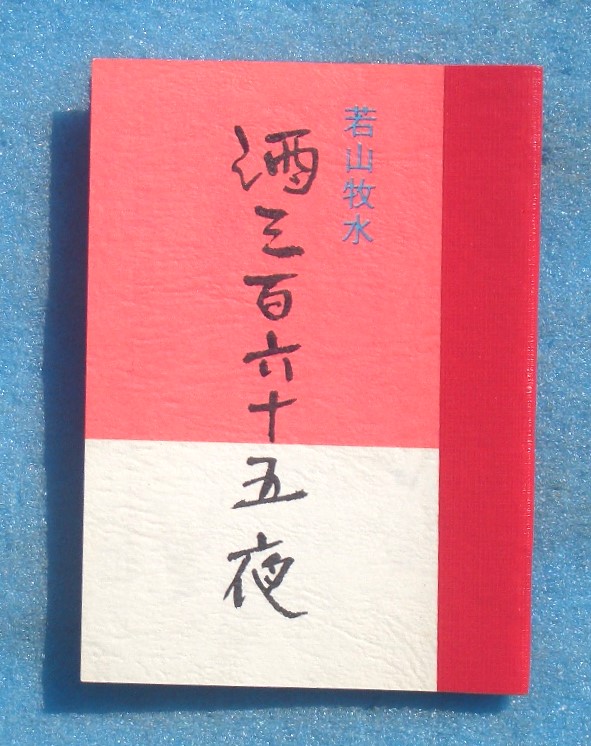 若山牧水
酒三百六十五夜